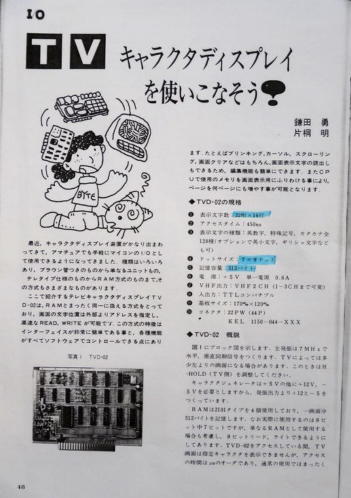 IO
TV キャラクタディスプレイ
を使いこなそう
鎌田 勇
片桐 明
BYTE
最近,キャラクタディスプレイ装置がかなり出まわ
ってきて,アマチュアでも手軽にマイコンのI/Oとし
て使用できるようになってきました.種類はいろいろ
あり,ブラウン管つきのものから単なるユニットもの,
テレタイプ仕様のものからRAM方式のものまで,そ
の方式もさまざまなものがあります.
ここで紹介するテレビキャラクタディスプレイTV
D-02は,RAMとまったく同一に扱える方式をとって
おり,画面の文字位置は外部よりアドレスを指定し,
高速なREAD,WRITEが可能です.この方式の特徴は
インターフェイスが非常に簡単である事と,各種機能
がすべてソフトウェアでコントロールできる点にあり
写真1 TVD-02
46
ます.たとえばブリンキング,カーソル,スクローリン
グ,画面クリアなどはもちろん,画面表示文字の読出し
もできるため,編集機能も簡単にできます.またCP
Uで使用のメモリを画面表示用にふりわける事により,
ページを何ページにも増やす事が可能となります.
◆TVD-02の規格
① 表示文字数
② アクセスタイム:450ns
③ 表示文字の種類:英数字,特殊記号,カタカナ全
128種(オプションで英小文字,ギリシャ文字など
も可)
④ ドットサイズ:
⑤ 記憶容量:512バイト
⑥ 電源:+5V 単一電源
⑦ VHF出力:VHF2CH(1~3CHまで可変)
⑧ 入出力:TTLコンパチブル
⑨ 基板サイズ:
⑩ コネクタ:22PW(44P)
KEL
◆TVD-02 概説
図1にブロック図を示します.主発振は7MHzで
水平,垂直同期信号をつくります.TVによっては多
少左よりの画面になる場合があります.このときはH
-HOLD(TV側)を調整してください.
キャラクタジェネレータは+5Vの他に+12V,-
5Vを必要としますから,発振出力より+12と-5を
つくっています.
RAMは2101タイプを4個使用しており,一画面分
512バイトを記憶します.なお実際に使用するのは8ビ
ット中7ビットですが,単なるRAMとして使用する
場合も考慮し,8ビットリード,ライトできるように
してあります.TVD-02をアクセスしている間,TV
画面は指定キャラクタを表示できませんが,アクセス
の時間はμsのオーダであり,通常の使用ではまったく